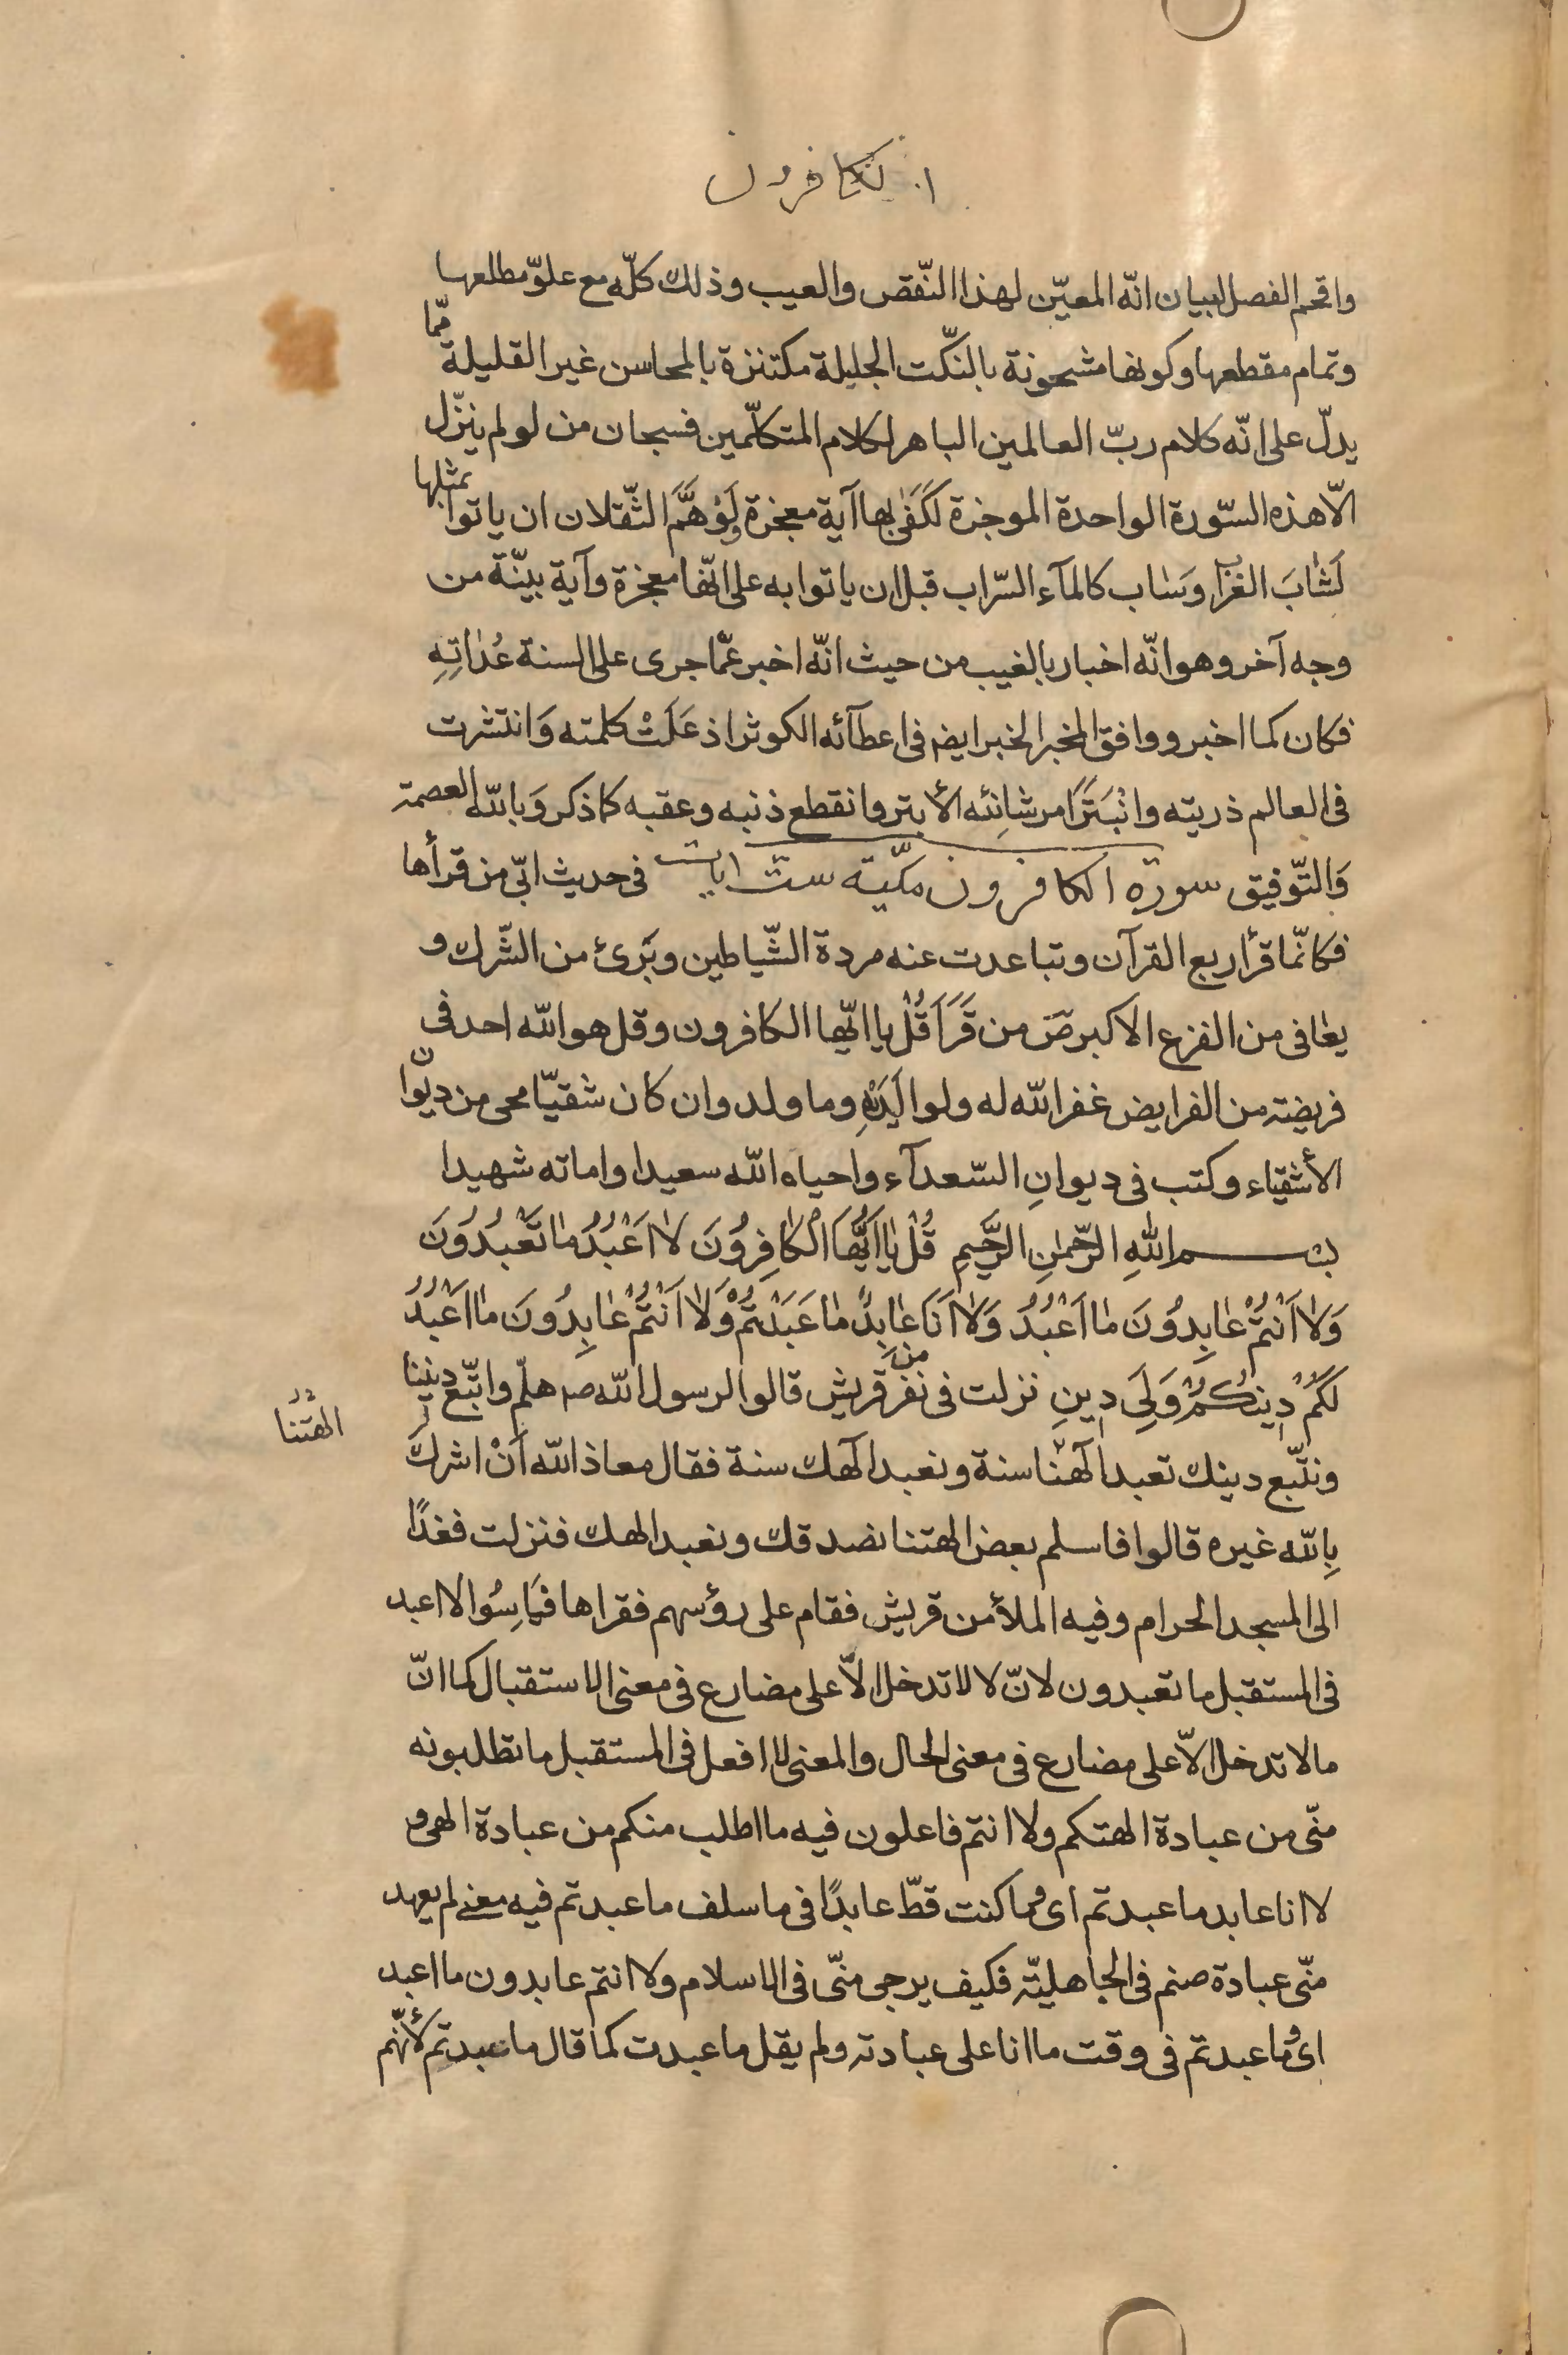 الكافرون
واقحم الفصل لبيان انّه المعيّن لهذا النّقص والعيب وذلك كلّه مع علوّ مطلعها
وتمام مقطعها وكونها مشحونة بالنكّت الجليلة مكتنزة بالمحاسن غير القليلة ممّا
يدلّ على انّه كلام ربّ العالمين الباهر لكلام المتكلّمين فسبحان من لو لم ينزّل
الّا هذه السّورة الواحدة الموجزة لَكَفَىٰ بها آية معجزة وَلَوْ هَمَّ الثّقلان ان ياتوا بمثلها
لَشَابَ الغراب وَسَاب كالمآء السّراب قبل ان ياتوا به على انّها معجزة وآية بينّة من
وجه آخر وهو انّه اخبار بالغيب من حيث انّه اخبر عمّا جرى على السنة عُدَاتِهِ
فكان كما اخبر ووافق المخبر الخبر ايضا فى اعطآئه الكوثر اذ عَلَتْ كلمته وَانتشرت
فى العالم ذريته وانْبَتَرَ امر شانِئه الأبتر وانقطع ذنبه وعقبه كما ذكر وَبالله العصمة
وَالتّوفيق سورة الكافرون مكّية ستّ ايات فى حديث ابىّ من قرأها
فكانّما قرأ ربع القرآن وتباعدت عنه مردة الشّياطين وبَرِئ من الشّرك و
يعافى من الفزع الاكبر صَ من قَرَاَ قُلْ يا ايّها الكافرون وقل هو الله احد فى
فريضة من الفرايض غفر الله له ولوالِدَيْهِ وما ولد وان كان شقيّا محى من ديوان
الأشقياء وكتب فى ديوانِ السّعدآء واحياه الله سعيدا واماته شهيدا
بسم اللهِ الرّحمٰنِ الرَّحِيمِ قُلْ يَا اَيُّهَا الْكَافِرُونَ لَا اَعْبُدُ مَا تَعْبُدُونَ
وَلَا اَنْتُمْ عَابِدُونَ مَا اَعْبُدُ وَلَا اَنَا عَابِدٌ مَا عَبَدْتُمْ وَلَا اَنْتُمْ عَابِدُونَ مَا اَعْبُدُ
لَكُمْ دِينُكُمْ وَلِىَ دِينِ نزلت فى نفر من قريش قالوا لرسول الله صه هلمّ واتّبع ديننا
ونتّبع دينك تعبد آلهتنا سنة ونعبد آلهك سنة فقال معاذ الله اَنْ اشرك
الهتنا
بِالله غيره قالوا فاسلم بعض الهتنا نصدقك ونعبد الهك فنزلت فغدًا
الى المسجد الحرام وفيه الملأ من قريش فقام على رؤسهم فقراها فَيَاسُوا لا اعبد
فى المستقبل ما تعبدون لانّ لا لا تدخل الّا على مضارع فى معنى الاستقبال كما انّ
ما لا تدخل الّا على مضارع فى معنى الحال والمعنى لا افعل فى المستقبل ما تطلبونه
منّى من عبادة الهتكم ولا انتم فاعلون فيه ما اطلب منكم من عبادة الهى و
لا انا عابد ما عبدتم اى وما كنت قطّ عابدًا فى ما سلف ما عبدتم فيه معنى لم يعهد
منّى عبادة صنم فى الجاهليّة فكيف يرجى منّى فى الاسلام ولا انتم عابدون ما اعبد
اى وما عبدتم فى وقت ما انا على عبادته ولم يقل ما عبدت كما قال ما عبدتم لأنّهم